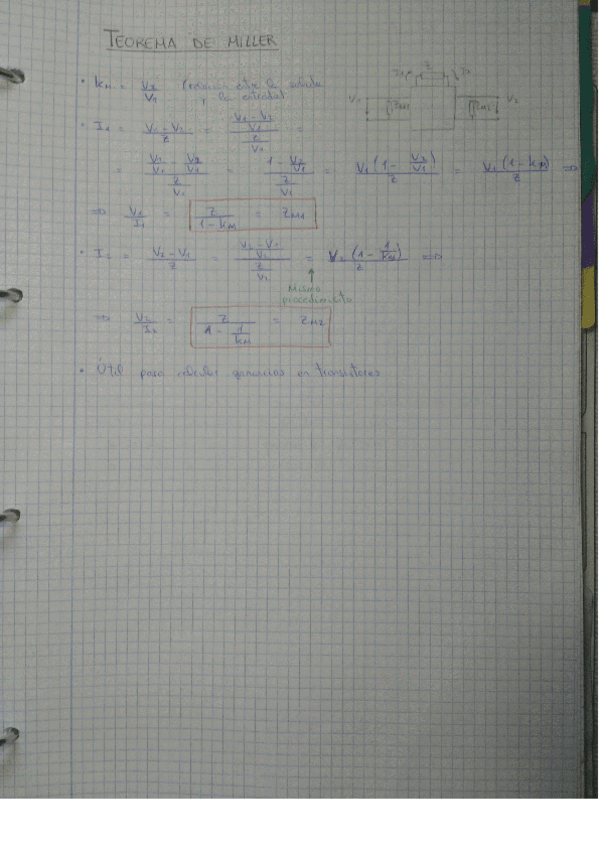 TEOREMA DE MILLER
• KM = V2/V1 (relación entre la salida y la entrada)
Z
I1 I2
V1 ZM1 ZM2 V2
• I1 = (V1 - V2)/Z = ((V1 - V2)/V1)/(Z/V1) =
= (V1/V1 - V2/V1)/(Z/V1) = (1 - V2/V1)/(Z/V1) = V1(1 - V2/V1)/Z = V1(1 - KM)/Z ⇒
⇒ V1/I1 = Z/(1 - KM) = ZM1
• I2 = (V2 - V1)/Z = ((V2 - V1)/V2)/(Z/V2) = V2(1 - 1/KM)/Z ⇒
Mismo
procedimiento
⇒ V2/I2 = Z/(1 - 1/KM) = ZM2
• Útil para calcular ganancias en transistores